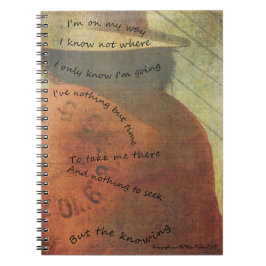 I'm on my way
I know not where
I only know I'm going
I've nothing but time
To take me there
And nothing to seek
But the knowing